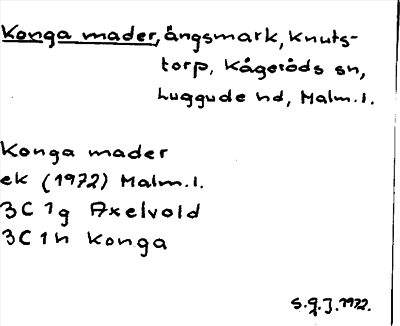 Konga mader, ängsmark, Knuts-
torp, Kågeröds sn,
Luggude hd, Malm. l.
Konga mader
ek (1972) Malm. l.
3C 1g Axelvold
3C 1h Konga
S.G.J. 1972.